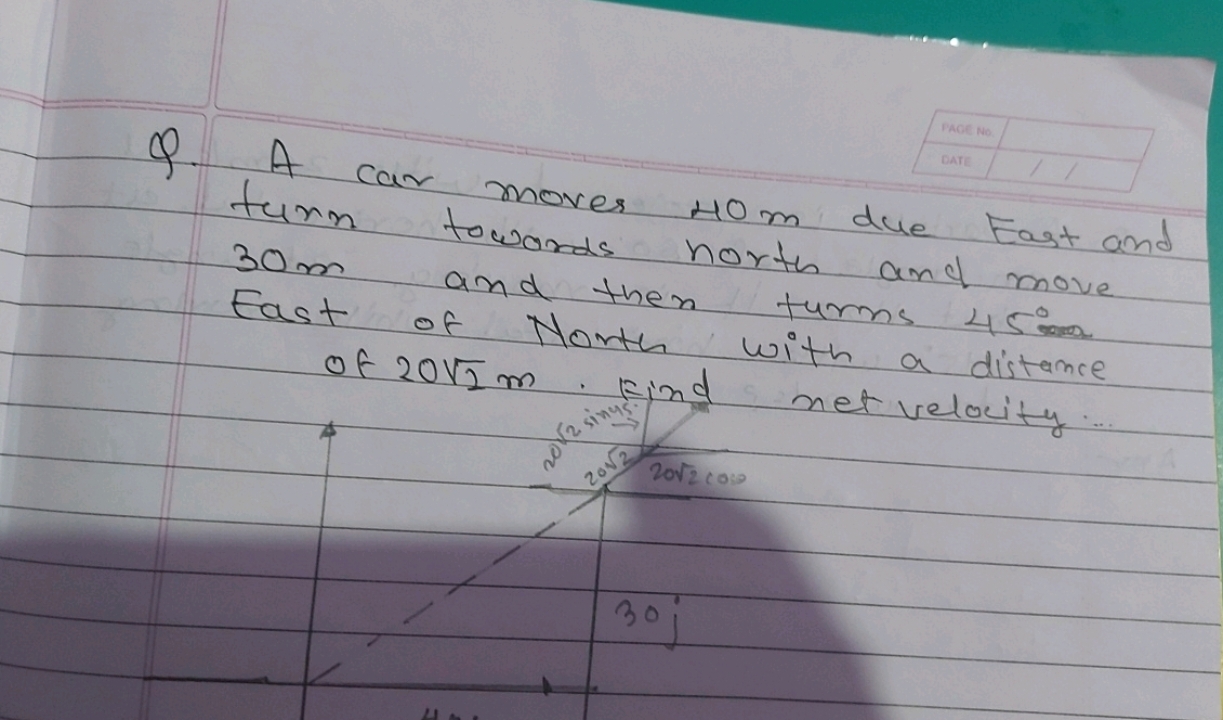 PAGE No.
DATE / /
Q. A car moves 40m due East and
turn towards north and move
30m and then turns 45°
East of North with a distance
of 20√2 m. Find net velocity...
20√2 sin45
20√2
20√2 cos
30j